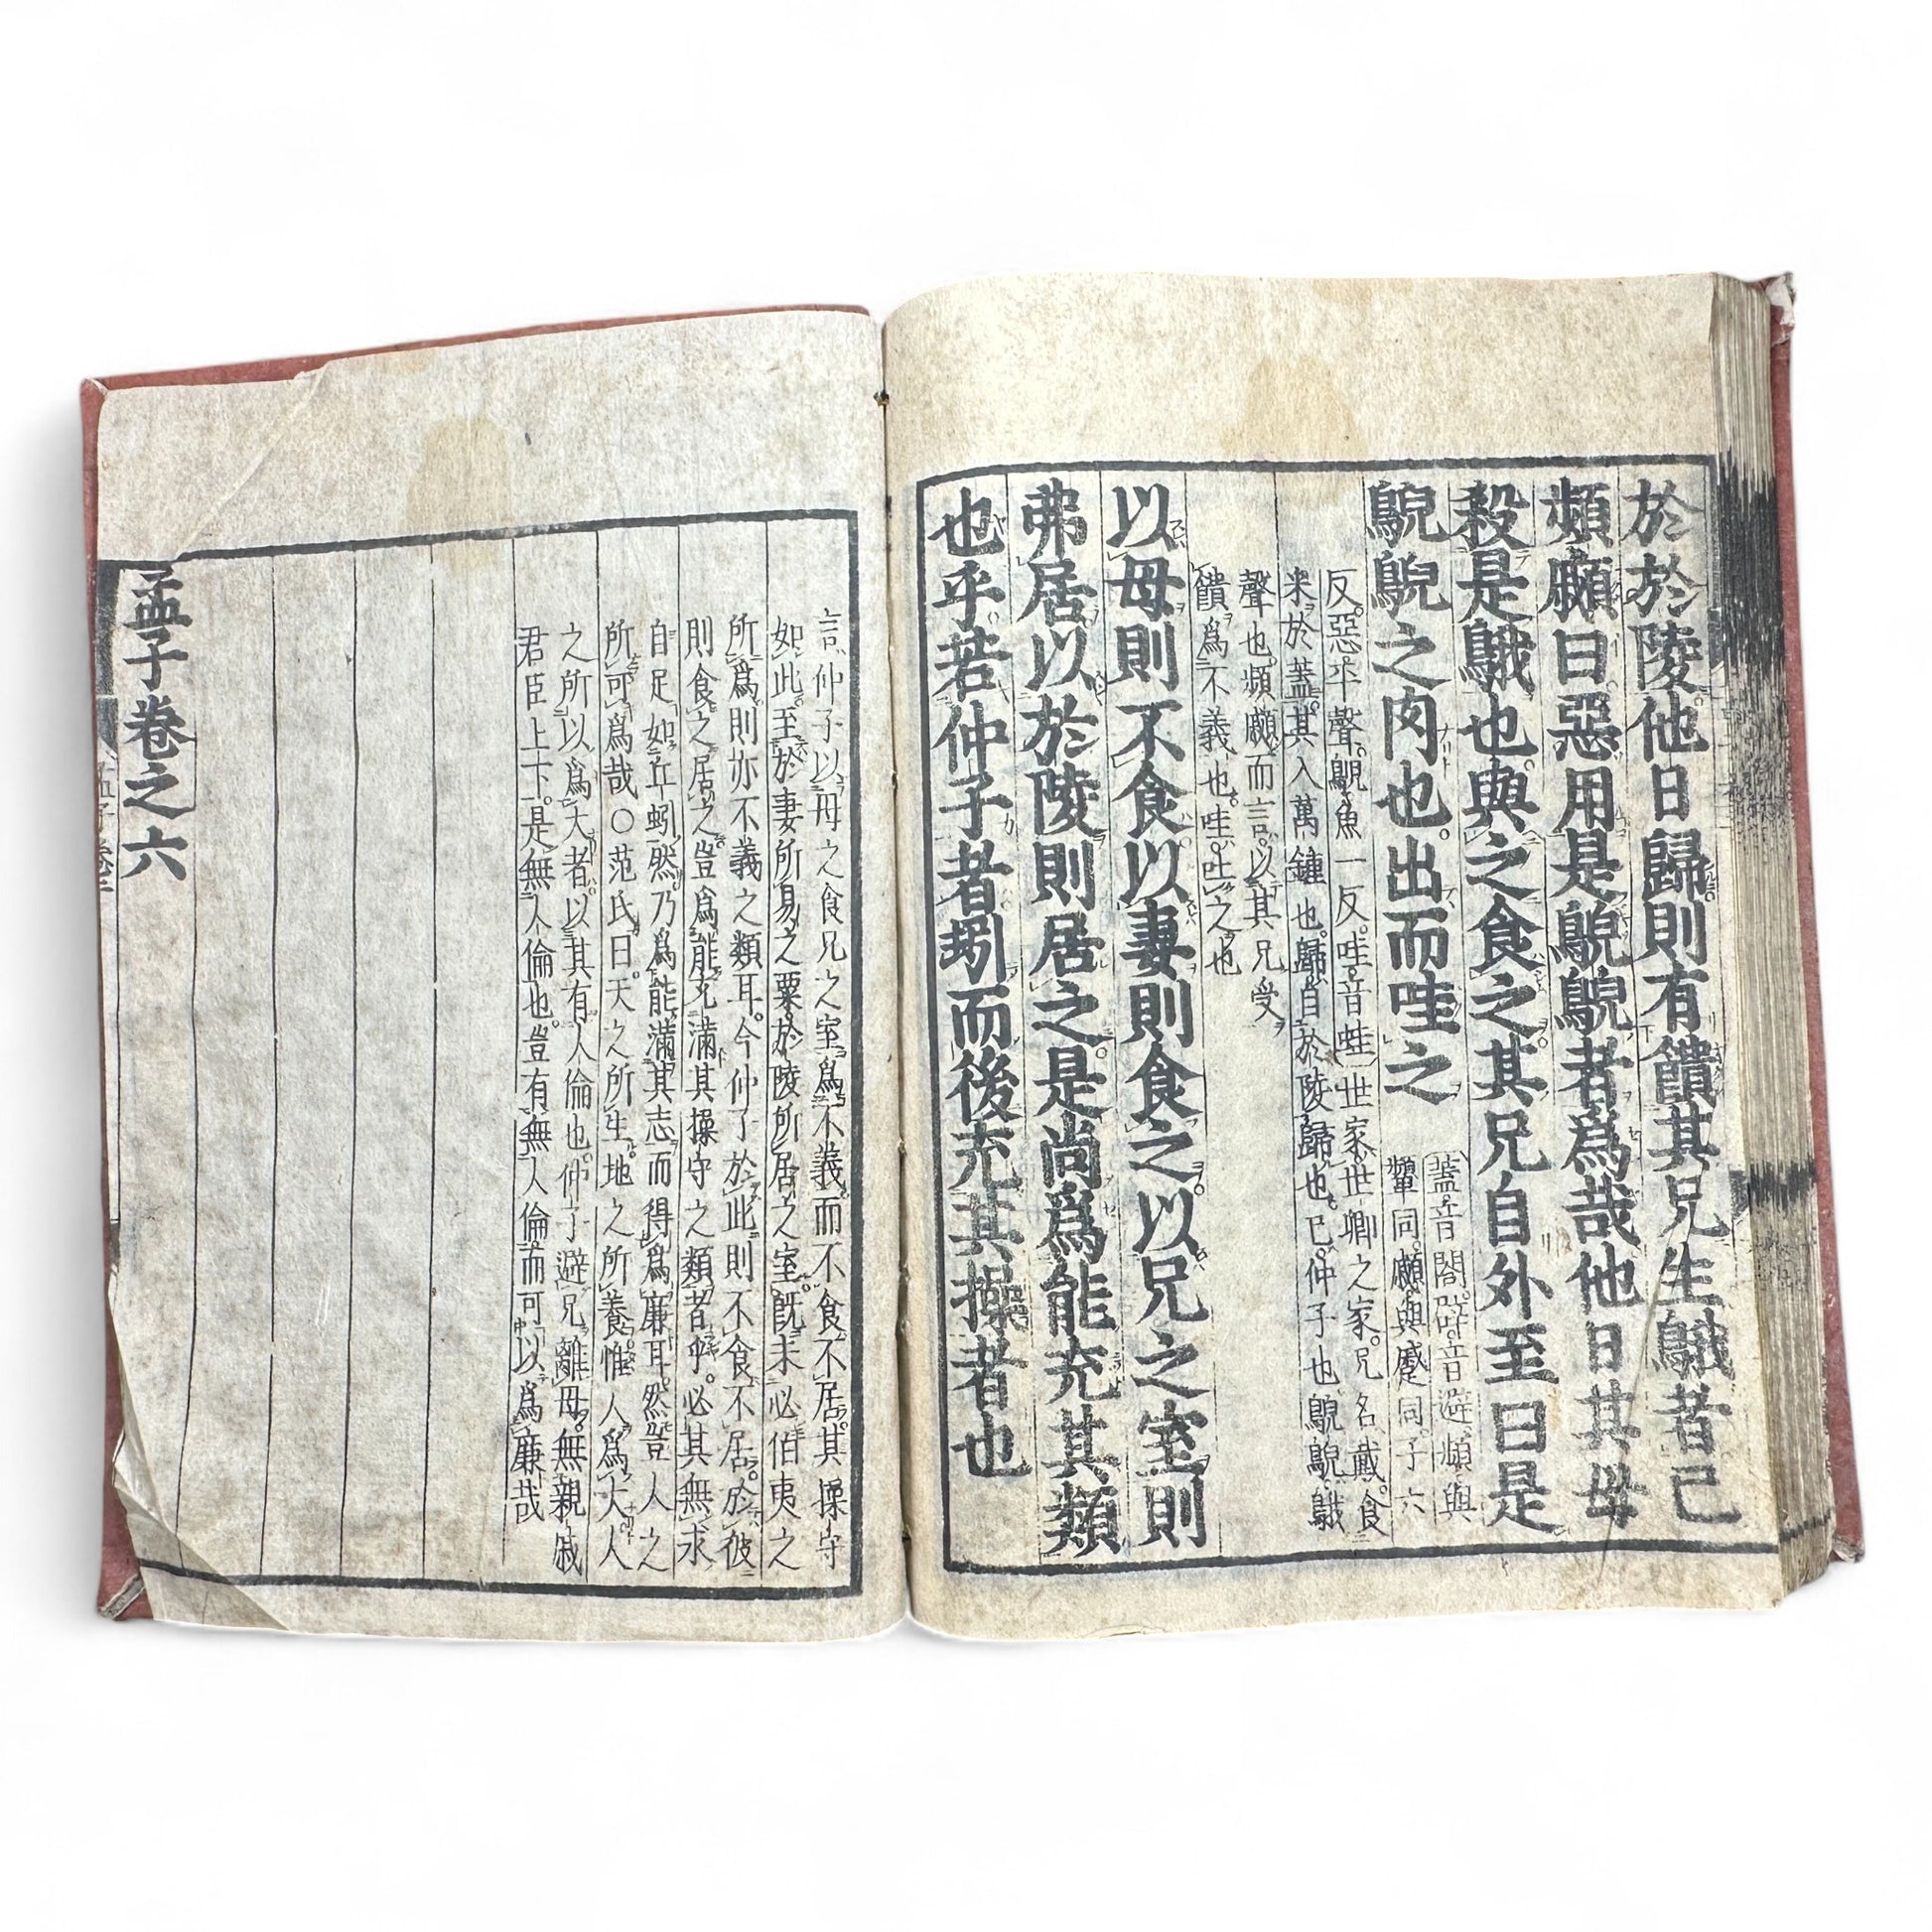 於於陵他日歸則有饋其兄生鵝者己
頻顣曰惡用是鶃鶃者爲哉他日其母
殺是鵝也與之食之其兄自外至曰是
鶃鶃之肉也出而哇之
蓋音閤辟音避頻與
顰同顣與蹙同子六
反惡平聲鶃魚一反哇音蛙世家世卿之家兄名戴食
采於蓋其入萬鍾也歸自於陵歸也己仲子也鶃鶃鵝
聲也頻顣而言以其兄受
饋爲不義也哇吐之也
以母則不食以妻則食之以兄之室則
弗居以於陵則居之是尚爲能充其類
也乎若仲子者蚓而後充其操者也
言仲子以母之食兄之室爲不義而不食不居其操守
如此至於妻所易之粟於陵所居之室旣未必伯夷之
所爲則亦不義之類耳今仲子於此則不食不居於彼
則食之居之豈爲能充滿其操守之類者乎必其無求
自足如丘蚓然乃爲能滿其志而得爲廉耳然豈人之
所可爲哉○范氏曰天之所生地之所養惟人爲大人
之所以爲大者以其有人倫也仲子避兄離母無親戚
君臣上下是無人倫也豈有無人倫而可以爲廉哉
孟子卷之六